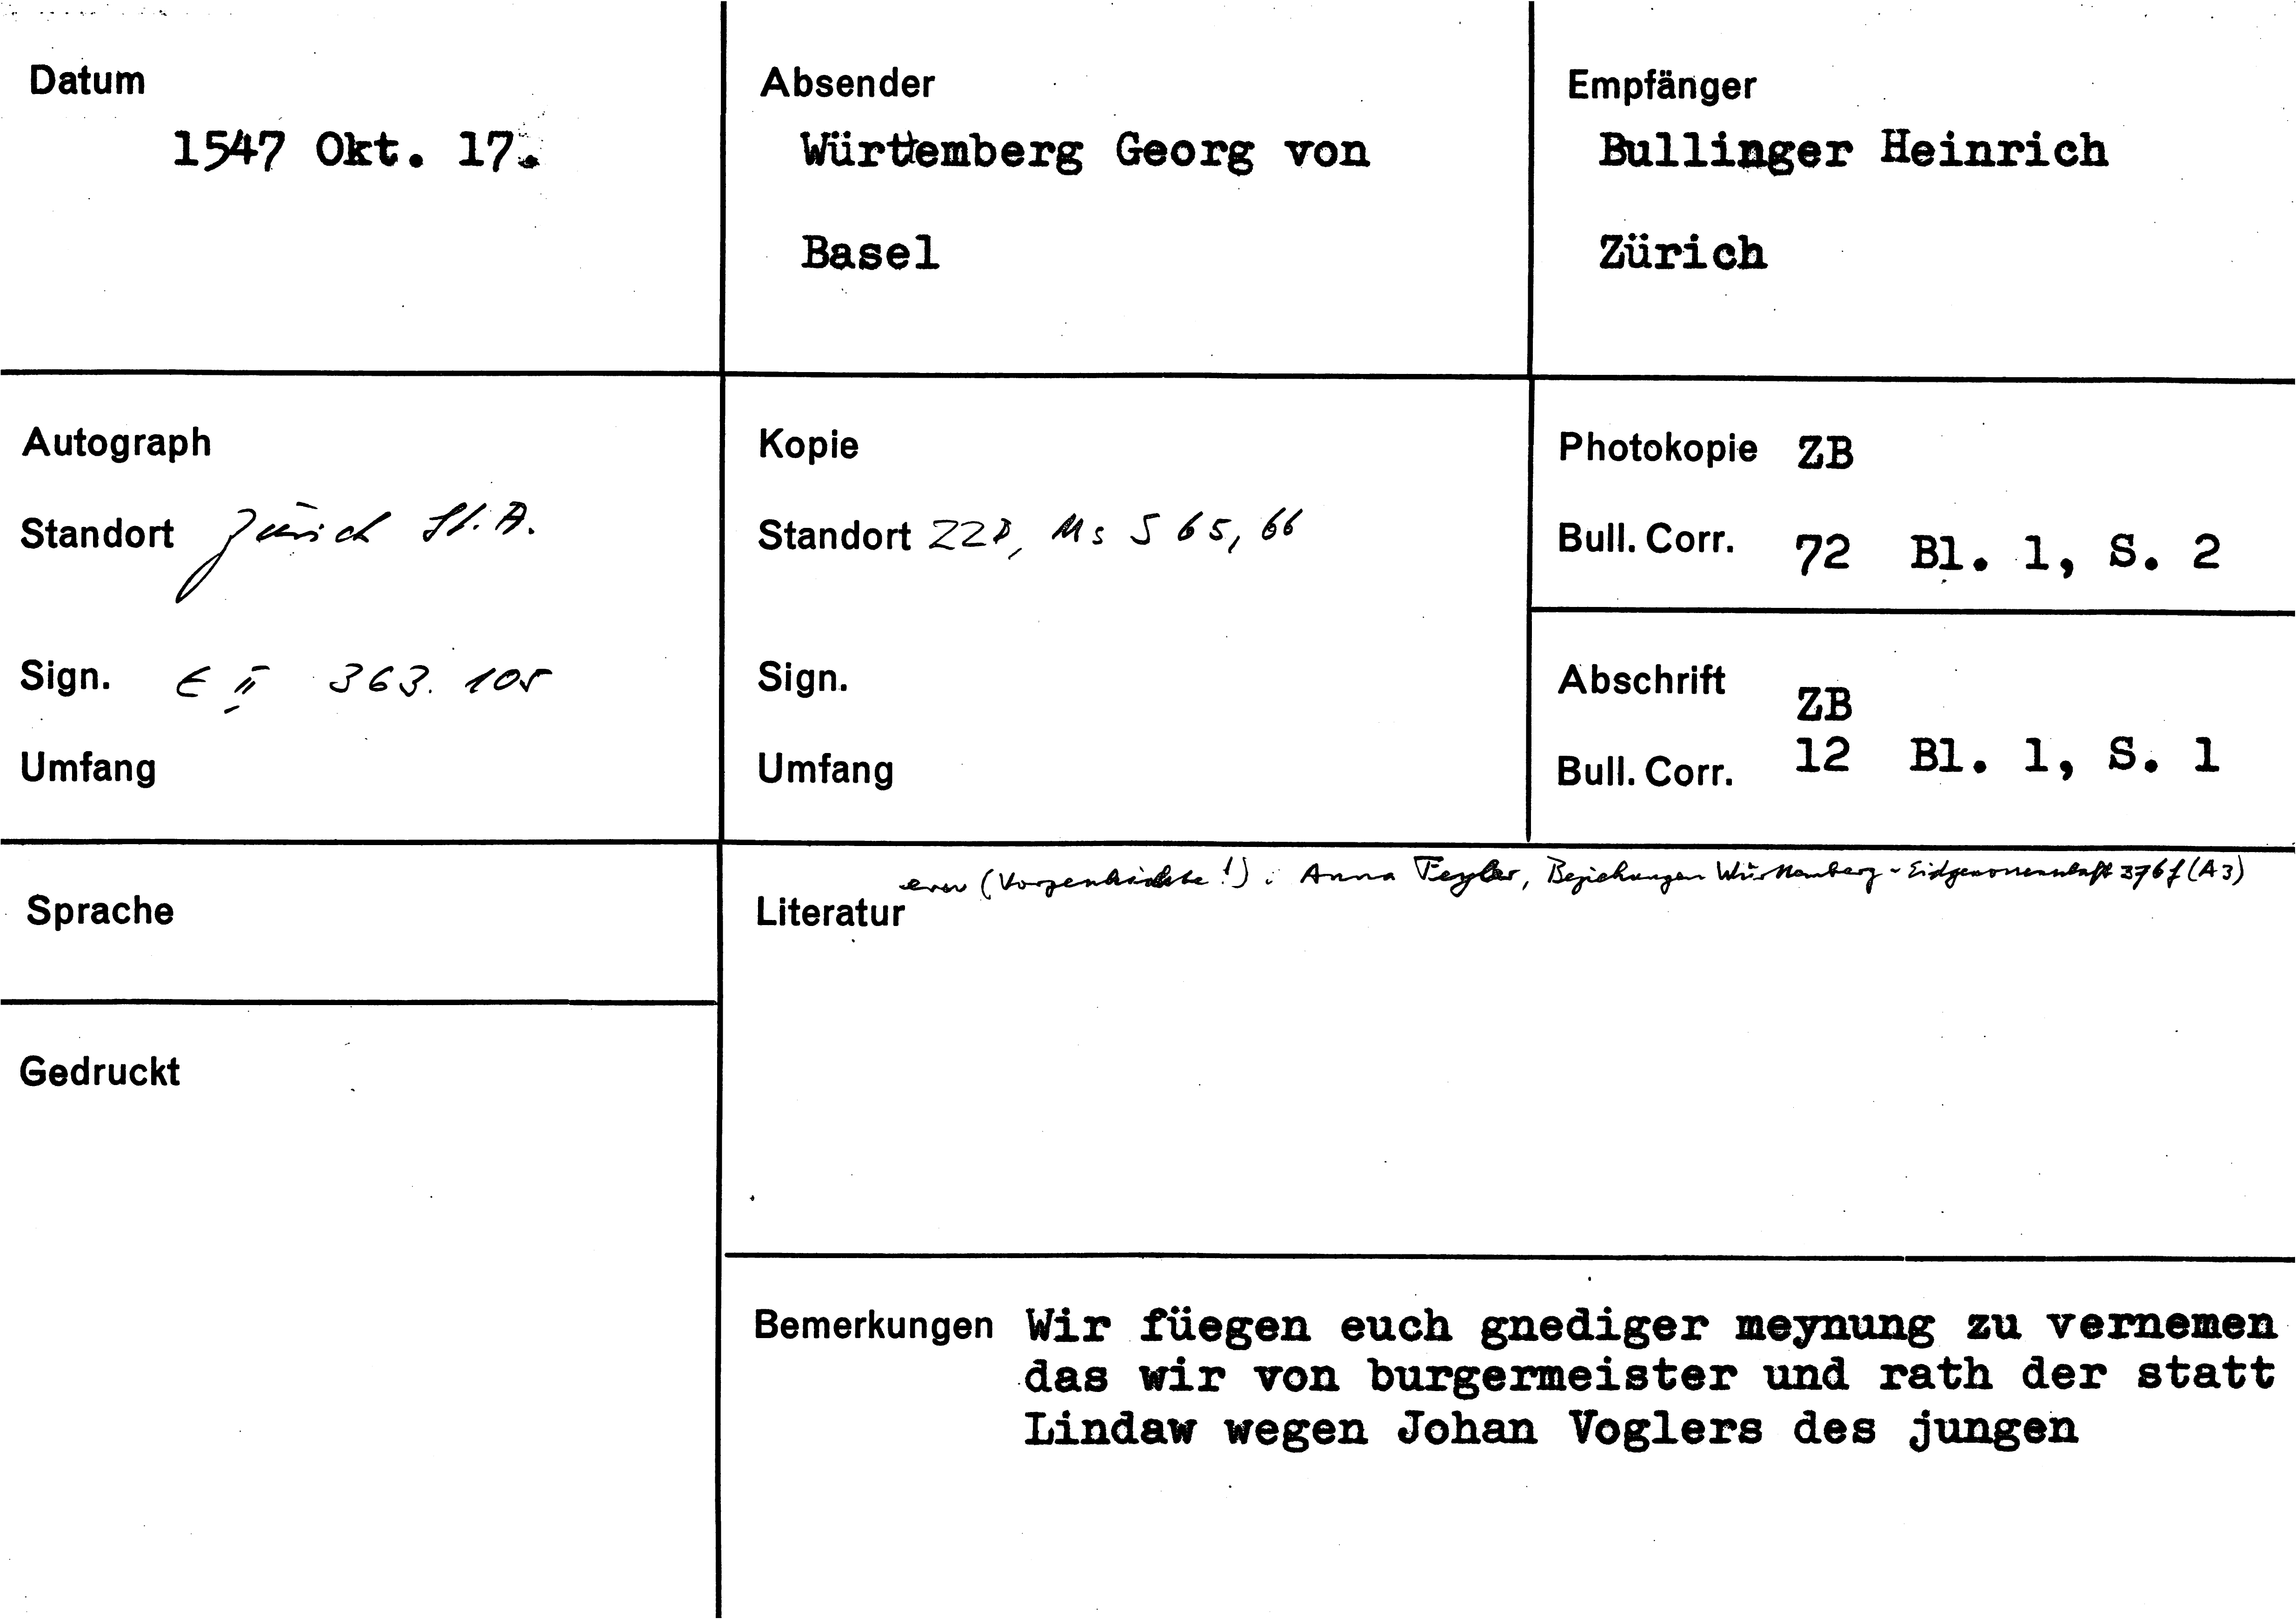 Datum
1547 Okt. 17.
Absender
Württemberg Georg von
Basel
Empfänger
Bullinger Heinrich
Zürich
Autograph
Standort Zürich St. A.
Sign. E II 363. 105
Umfang
Kopie
Standort ZZB, Ms S 65, 66
Sign.
Umfang
Photokopie ZB
Bull. Corr. 72 Bl. 1, S. 2
Abschrift ZB
Bull. Corr. 12 Bl. 1, S. 1
Sprache
Gedruckt
Literatur erw (Vorgeschichte!): Anna Feyler, Beziehungen Württemberg - Eidgenossenschaft 376f (A3)
Bemerkungen Wir füegen euch gnediger meynung zu vernemen
das wir von burgermeister und rath der statt
Lindaw wegen Johan Voglers des jungen